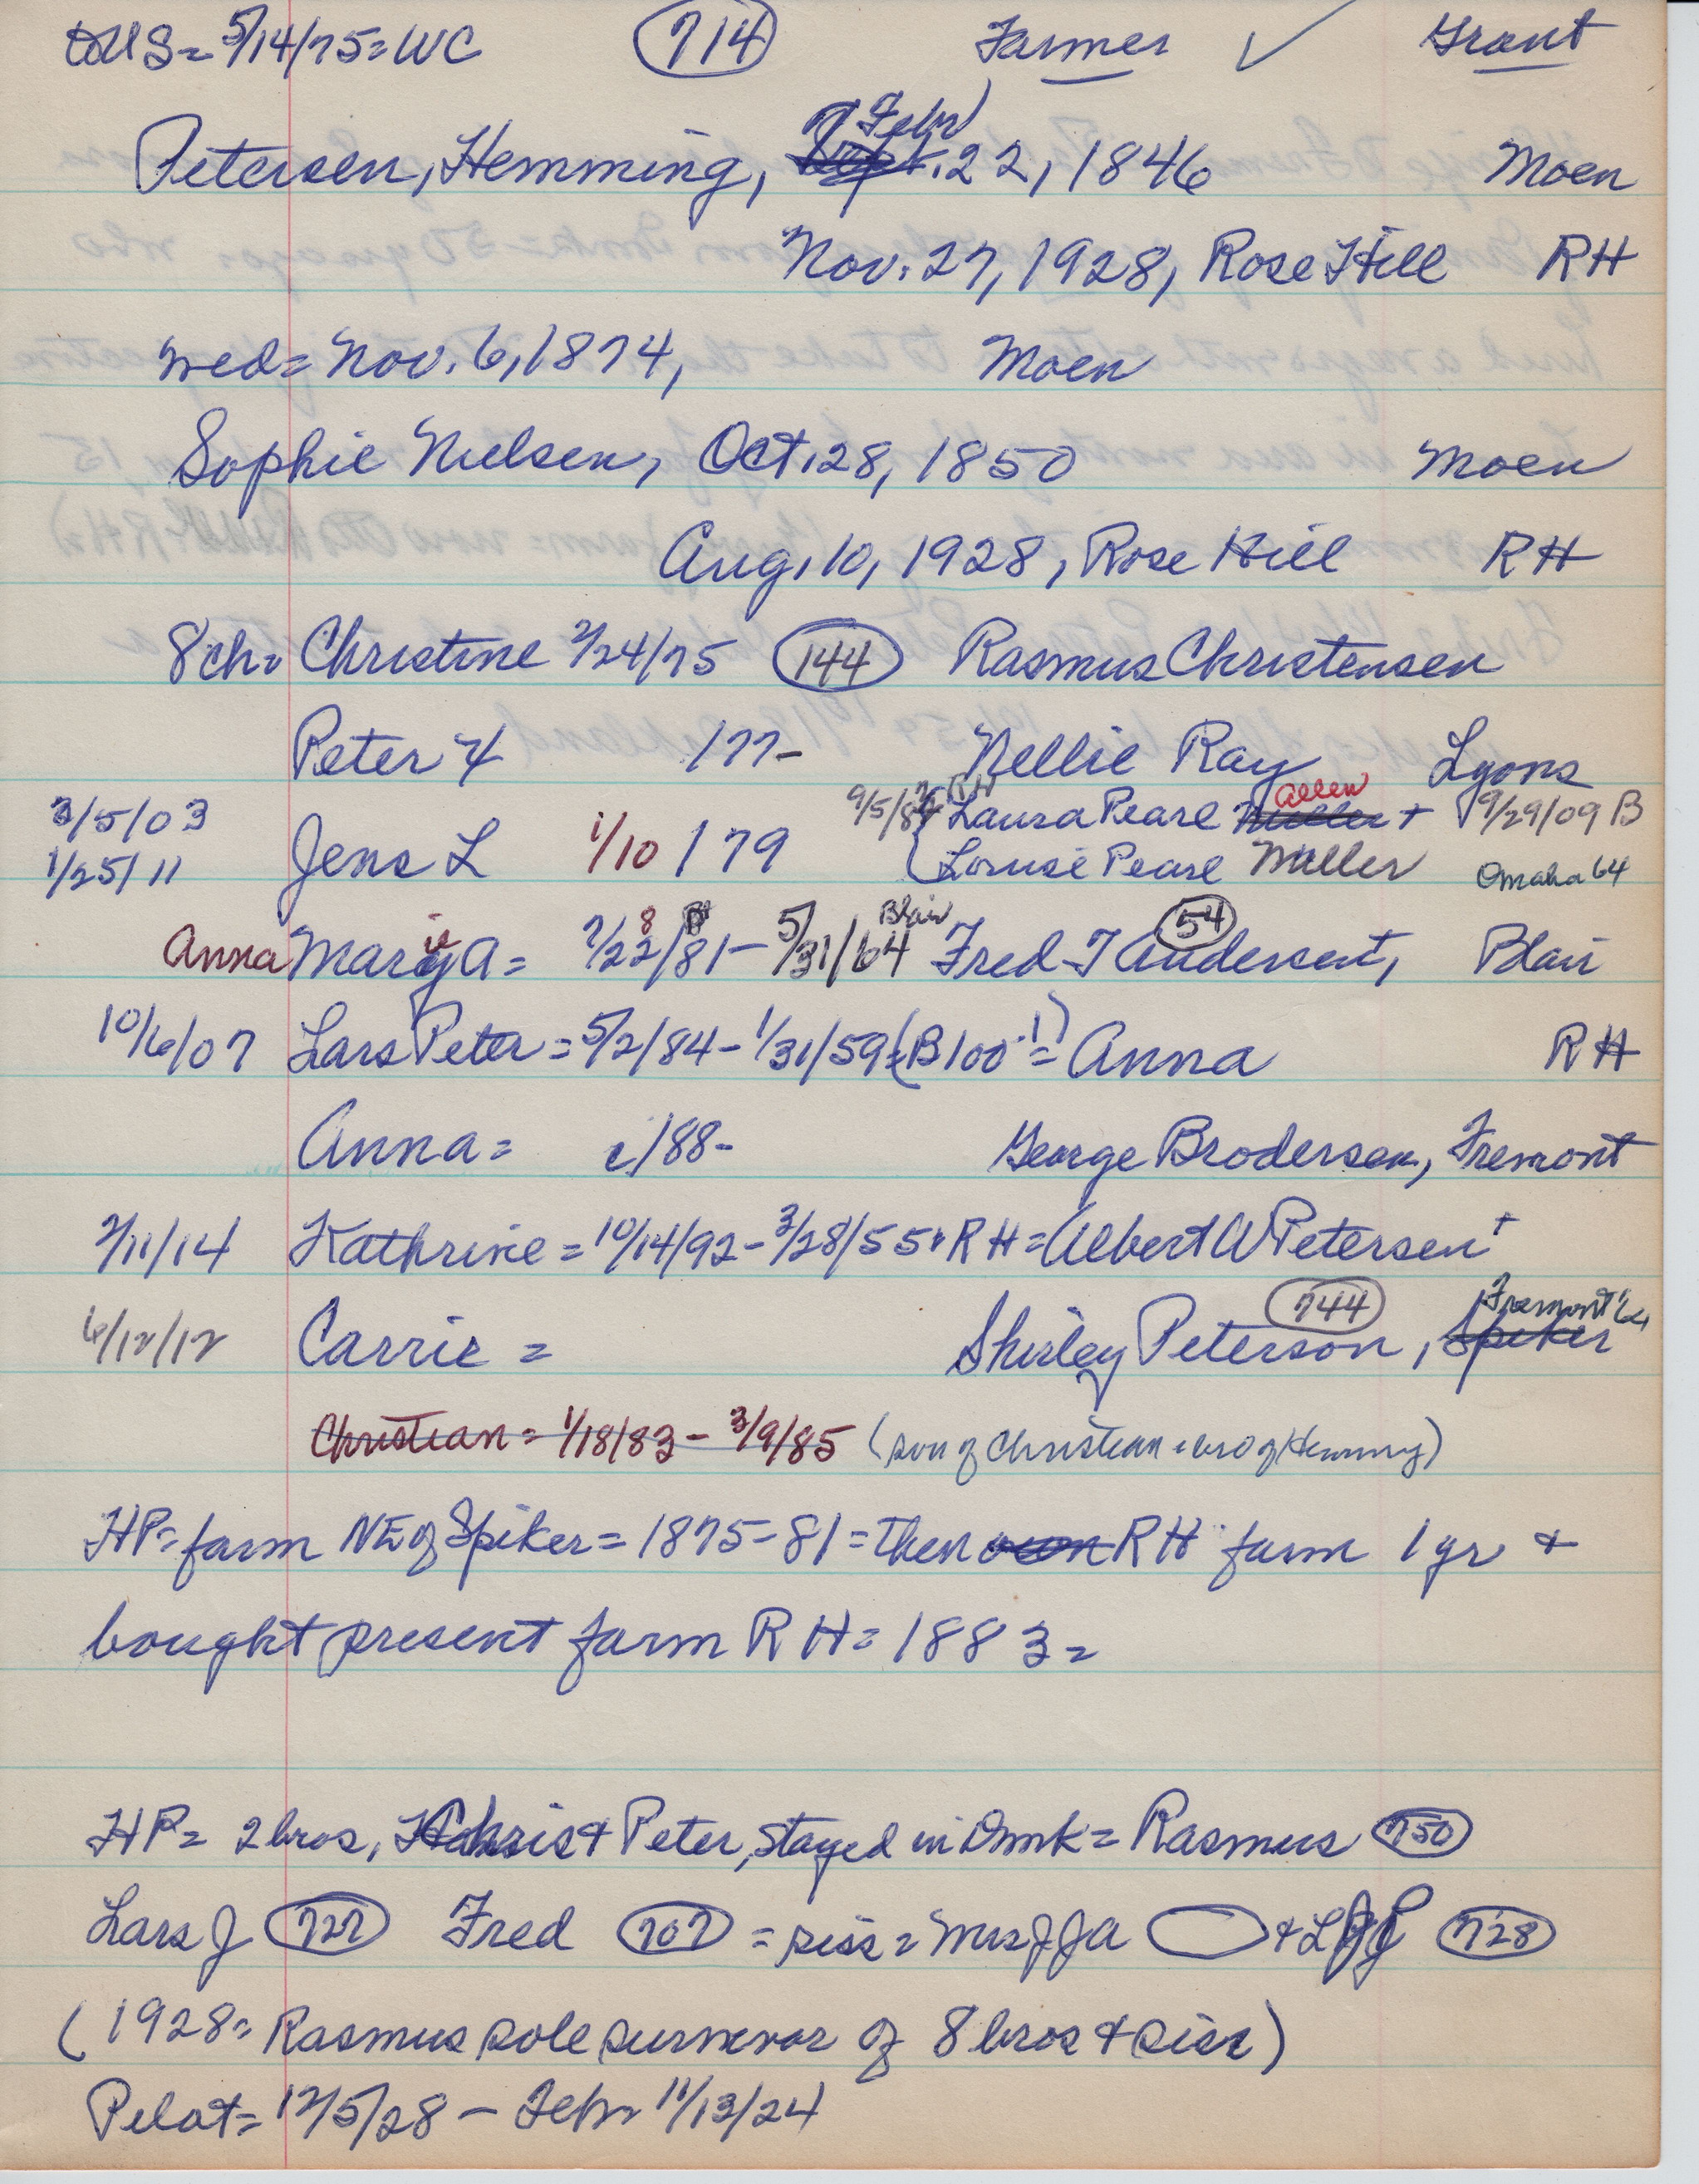 toUS= 5/14/75=WC 714 Farmer ✓ Grant
Febr
Petersen, Hemming, Sept. 22, 1846 Moen
Nov. 27, 1928, Rose Hill RH
wed= Nov. 6, 1874, Moen
Sophie Nielsen, Oct. 28, 1850 Moen
Aug. 10, 1928, Rose Hill RH
8ch= Christine 2/24/75 144 Rasmus Christensen
Peter H /77- Nellie Ray Lyons
3/5/03 9/5/84 RH Laura Pearl Miller Allen + 9/29/09 B
1/25/11 Jens L 1/10/79 Louise Pearl Miller Omaha 64
Anna Marie A= 7/22/81- 5/31/64 Blair Fred T Andersen+, 54 Blair
10/6/07 Lars Peter = 5/2/84 - 1/31/59 (B100-1) = Anna RH
Anna = c/88- George Brodersen, Fremont
2/11/14 Kathrine = 10/14/92 - 3/28/55. RH = Albert W Petersen +
6/12/12 Carrie = Shirley Peterson, 744 Spiker Fremont
Christian = 1/18/83 - 3/9/85 (son of Christian = bro of Hemming)
HP= farm NE of Spiker = 1875-81 = then own RH farm 1 yr +
bought present farm RH = 1883 =
HP= 2 bros, Chris + Peter, stayed in Dmk = Rasmus 750
Lars J 727 Fred 707 = siss = Mrs J J A + L P J 728
(1928= Rasmus sole survivor of 8 bros + siss)
Pilot= 12/5/28 - Febr 11/13/24